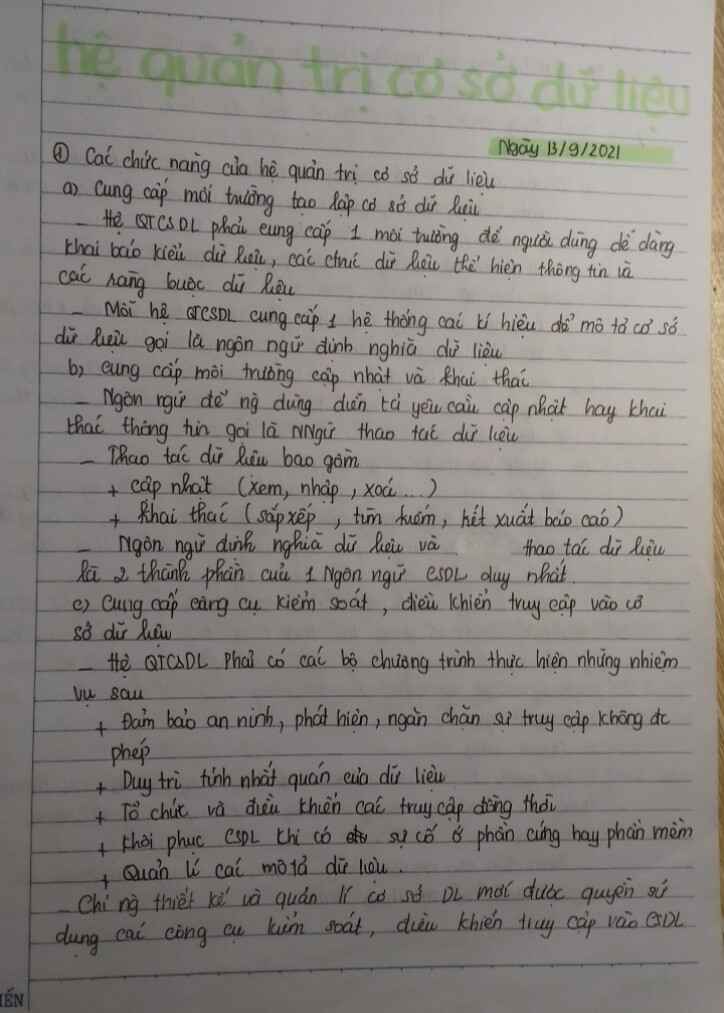 hệ quản trị cơ sở dữ liệu
Ngày 13/9/2021
① Các chức năng của hệ quản trị cơ sở dữ liệu
a) Cung cấp môi trường tạo lập cơ sở dữ liệu
- Hệ QTCSDL phải cung cấp 1 môi trường để người dùng dễ dàng
khai báo kiểu dữ liệu, các ctruc dữ liệu thể hiện thông tin và
các ràng buộc dữ liệu
- Mỗi hệ QTCSDL cung cấp 1 hệ thống các kí hiệu để mô tả cơ sở
dữ liệu gọi là ngôn ngữ định nghĩa dữ liệu
b) cung cấp môi trường cập nhật và khai thác
- Ngôn ngữ để ng dùng diễn tả yêu cầu cập nhật hay khai
thác thông tin gọi là NNgữ thao tác dữ liệu
- Thao tác dữ liệu bao gồm
+ cập nhật (xem, nhập, xoá...)
+ khai thác (sắp xếp, tìm kiếm, kết xuất báo cáo)
- Ngôn ngữ định nghĩa dữ liệu và thao tác dữ liệu
là 2 thành phần của 1 Ngôn ngữ CSDL duy nhất.
c) Cung cấp công cụ kiểm soát, điều khiển truy cập vào cơ
sở dữ liệu
- Hệ QTCSDL phải có các bộ chương trình thực hiện những nhiệm
vụ sau
+ Đảm bảo an ninh, phát hiện, ngăn chặn sự truy cập không đc
phép
+ Duy trì tính nhất quán của dữ liệu
+ Tổ chức và điều khiển các truy cập đồng thời
+ Khôi phục CSDL khi có sự cố ở phần cứng hay phần mềm
+ Quản lí các mô tả dữ liệu.
- Chỉ ng thiết kế và quản lí cơ sở DL mới được quyền sử
dụng các công cụ kiểm soát, điều khiển truy cập vào CSDL
IẾN